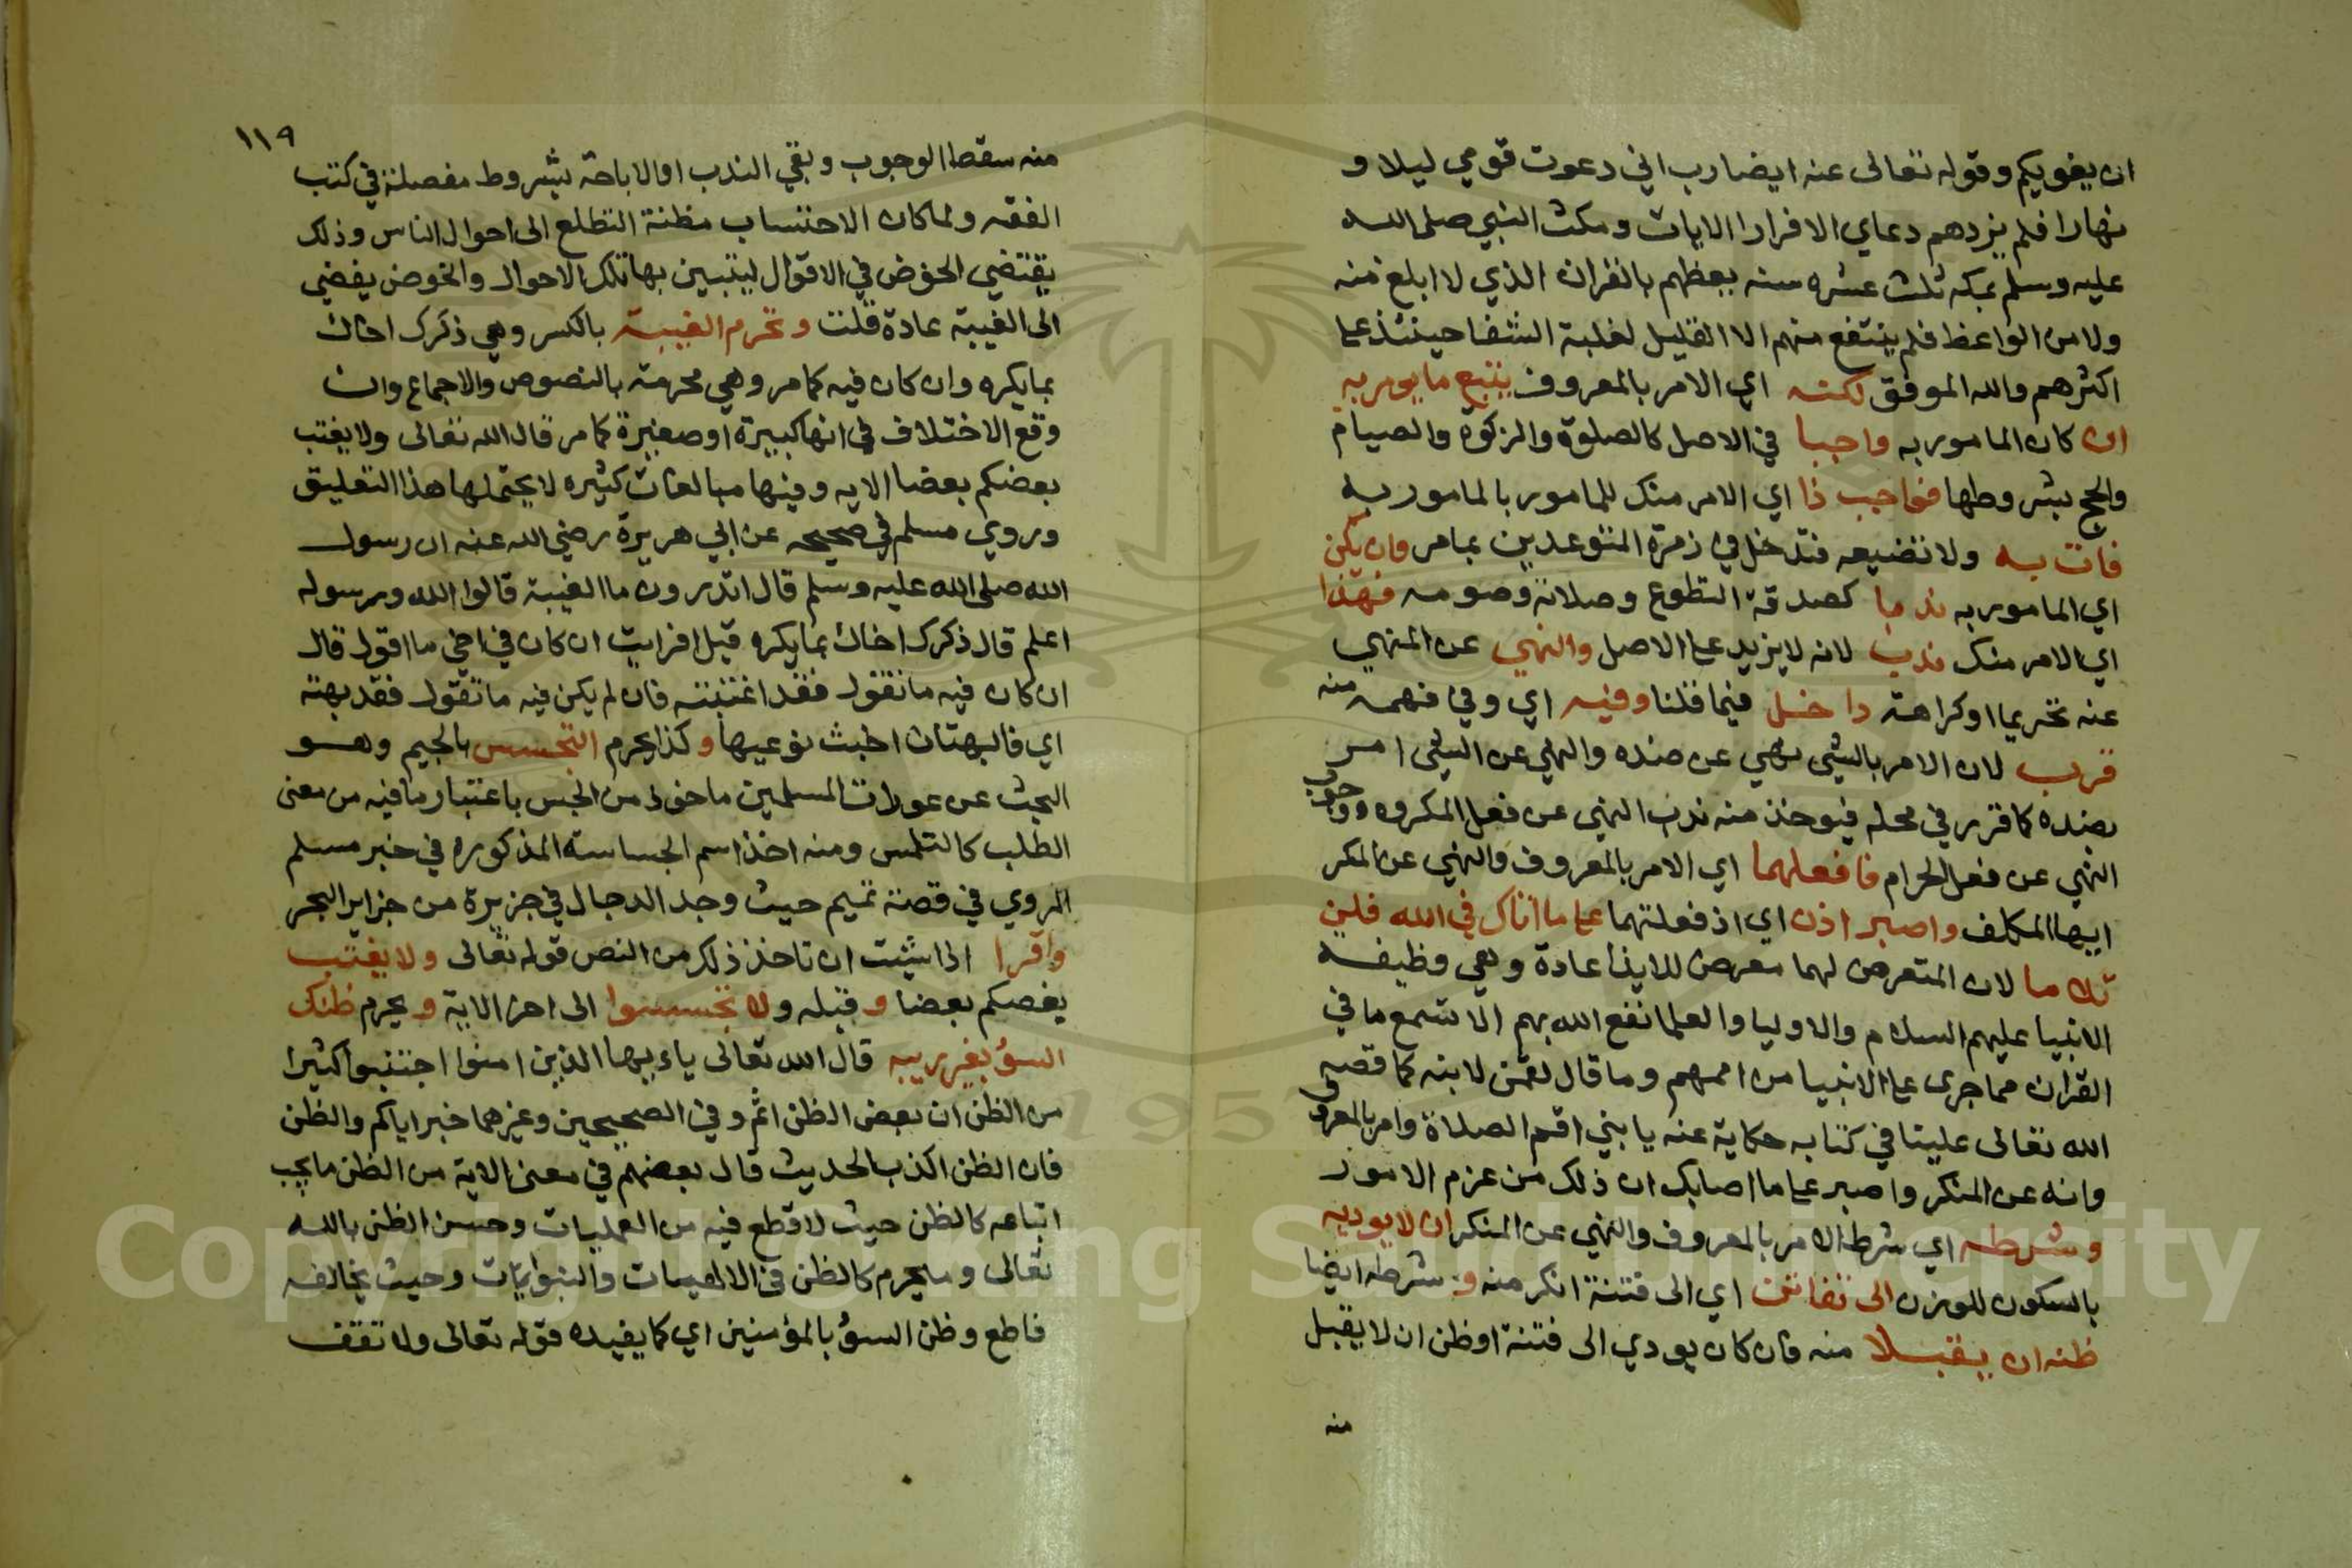 ان يغويكم وقوله تعالى عنه ايضا رب اني دعوت قومي ليلا و
نهارا فلم يزدهم دعاي الا فرارا الايات ومكث النبي صلى الله
عليه وسلم بمكه ثلث عشره سنه يعظهم بالقران الذي لا ابلغ منه
ولا من الواعظ فلم ينتفع منهم الا القليل لغلبة الشقا حينئذ على
اكثرهم والله الموفق لكنه اي الامر بالمعروف يتبع ما يومر به
ان كان المامور به واجبا في الاصل كالصلوة والزكوة والصيام
والحج بشروطها فواجب ذا اي الامر منك للمامور بالمامور به
فات به ولا تضيعه فتدخل في زمرة المتوعدين بمامر وان يكن
اي المامور به ندبا كصدقة التطوع وصلاته وصومه فهذا
اي الامر منك ندب لانه لا يزيد على الاصل والنهي عن المنهي
عنه تحريما او كراهة داخل فيما قلنا وفيه اي وفي فهمه منه
قرب لان الامر بالشي نهي عن ضده والنهي عن الشي امر
بضده كما قرر في محله فيوخذ منه ندب النهي عن فعل المكروه ووجوب
النهي عن فعل الحرام فافعلهما اي الامر بالمعروف والنهي عن المنكر
ايها المكلف واصبر اذن اي اذ فعلتهما على ما اتاك في الله فلن
تلاما لان المتعرض لهما معرض للايذا عادة وهي وظيفة
الانبيا عليهم السلام والاوليا والعلما نفع الله بهم الا تسمع ما في
القران مما جرى على الانبيا من اممهم وما قال لقمن لابنه كما قصه
الله تعالى علينا في كتابه حكاية عنه يا بني اقم الصلاة وامر بالمعروف
وانه عن المنكر واصبر على ما اصابك ان ذلك من عزم الامور
وشرطه اي شرط الامر بالمعروف والنهي عن المنكر ان لا يوديه
بالسكون للوزن الى تفاتن اي الى فتنة انكر منه و شرطه ايضا
ظنه ان يقبلا منه فان كان يودي الى فتنة او ظن ان لا يقبل
منه
١١٩
منه سقط الوجوب وبقي الندب او الاباحة بشروط مفصلة في كتب
الفقه ولما كان الاحتساب مظنة التطلع الى احوال الناس وذلك
يقتضي الخوض في الاقوال ليتبين بها تلك الاحوال والخوض يفضي
الى الغيبة عادة قلت وتحرم الغيبة بالكسر وهي ذكرك اخاك
بما يكره وان كان فيه كما مر وهي محرمة بالنصوص والاجماع وان
وقع الاختلاف في انها كبيرة او صغيرة كما مر قال الله تعالى ولا يغتب
بعضكم بعضا الايه وفيها مبالغات كثيره لا يحتملها هذا التعليق
وروي مسلم في صحيحه عن ابي هريرة رضي الله عنه ان رسول
الله صلى الله عليه وسلم قال اتدرون ما الغيبة قالوا الله ورسوله
اعلم قال ذكرك اخاك بما يكره قيل افرايت ان كان في اخي ما اقول قال
ان كان فيه ما تقول فقد اغتبته فان لم يكن فيه ما تقول فقد بهته
اي فالبهتان اخبث نوعيها وكذا يحرم التجسس بالجيم وهو
البحث عن عورات المسلمين ماخوذ من الجس باعتبار ما فيه من معنى
الطلب كالتلمس ومنه اخذ اسم الجساسة المذكوره في خبر مسلم
المروي في قصة تميم حيث وجد الدجال في جزيرة من جزاير البحر
واقرا اذا شئت ان تاخذ ذلك من النص قوله تعالى ولا يغتب
بعضكم بعضا و قبله ولا تجسسوا الى اخر الاية ويحرم ظنك
السؤ بغير ريبه قال الله تعالى ياءيها الذين امنوا اجتنبوا كثيرا
من الظن ان بعض الظن اثم وفي الصحيحين وغيرهما خبر اياكم والظن
فان الظن اكذب الحديث قال بعضهم في معنى الاية من الظن ما يجب
اتباعه كالظن حيث لا قطع فيه من العمليات وحسن الظن بالله
تعالى وما يحرم كالظن في الالهيات والنبوايات وحيث يخالفه
قاطع وظن السؤ بالمؤمنين اي كما يفيده قوله تعالى ولا تقف
Copyright © King Saud University
195